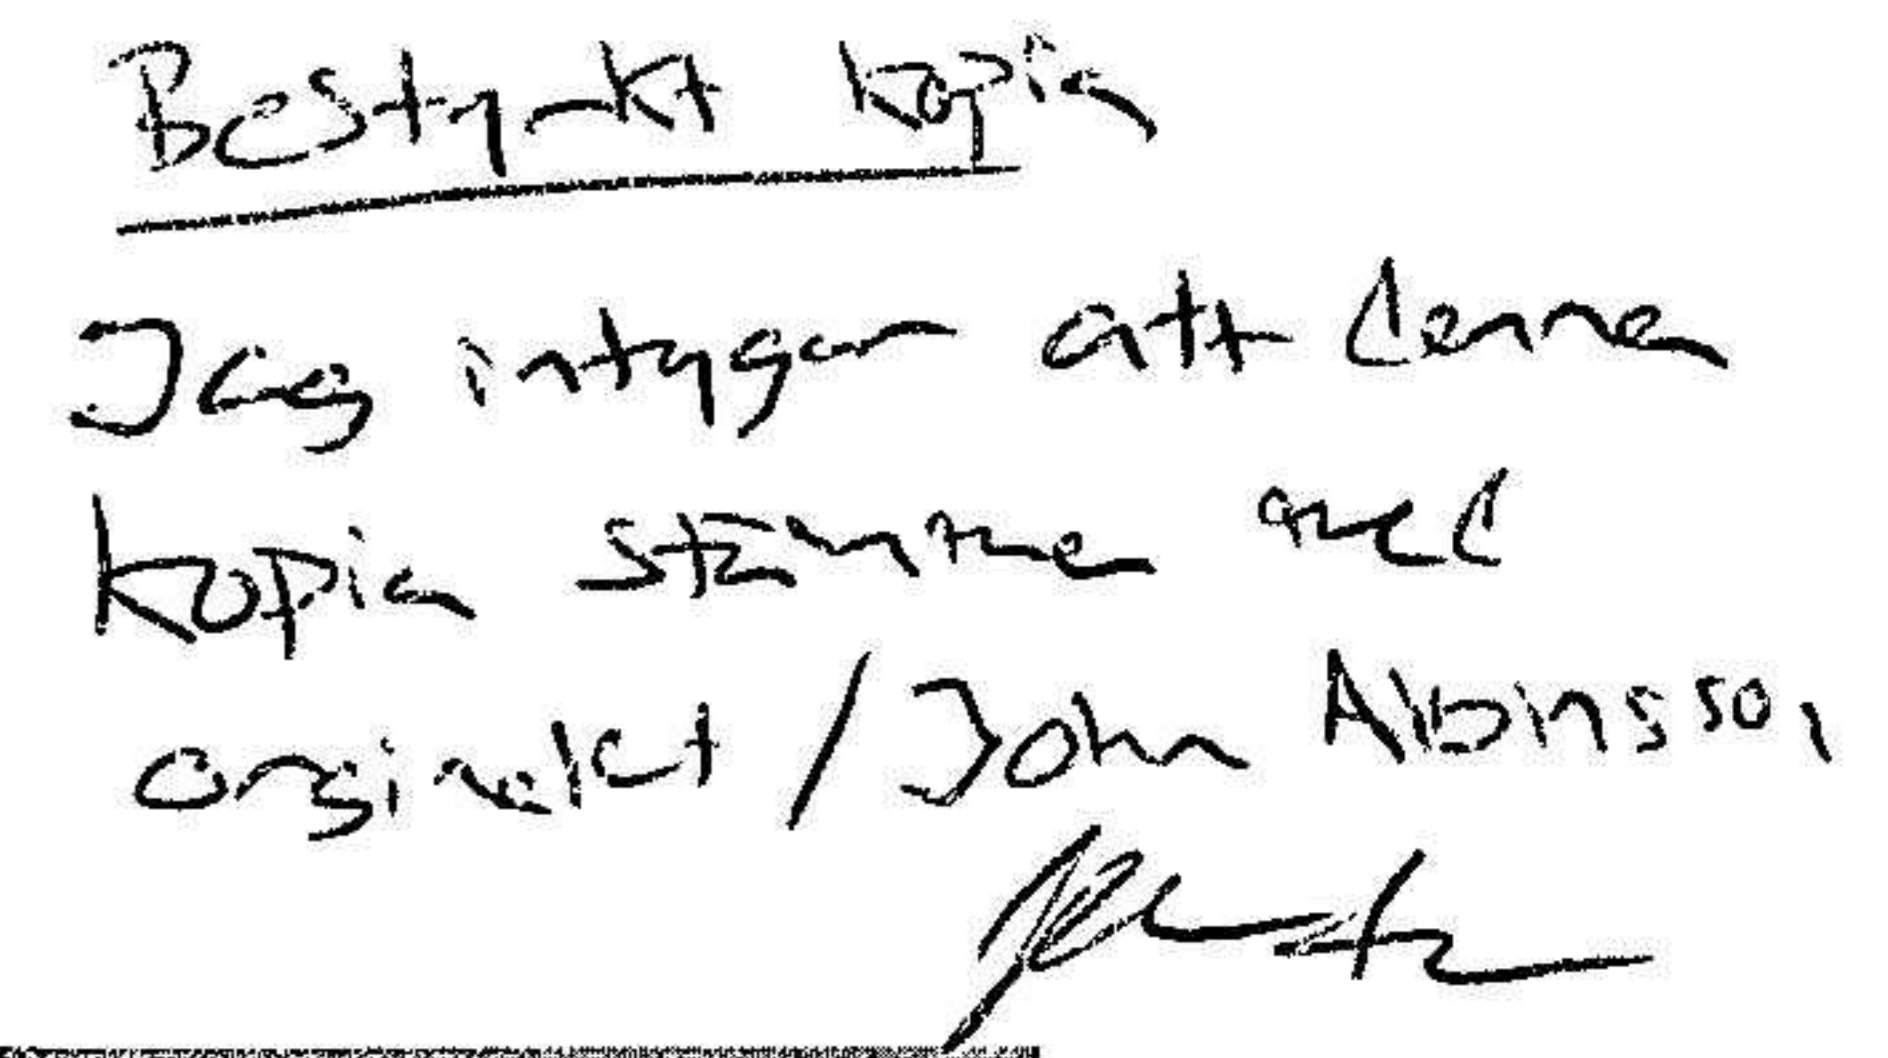 Bestyrkt kopia
Jag intygar att denna
kopia stämmer med
orginalet / John Albinsson